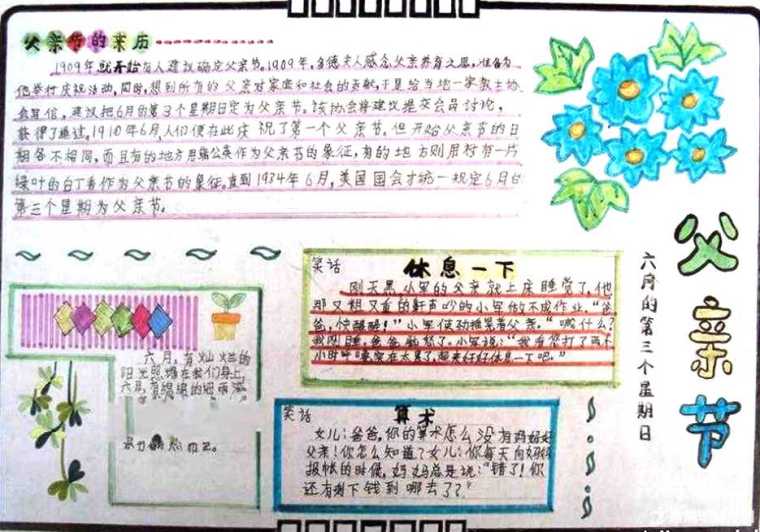 父亲节的来历
1909年就开始有人建议确定父亲节。1909年,多德夫人感念父亲养育之恩,准备为
他举行庆祝活动,同时,想到所有的父亲对家庭和社会的贡献,于是给当地一家教士协
会写信,建议把6月的第3个星期日定为父亲节。该协会将建议提交会员讨论,
获得了通过,1910年6月,人们便在此庆祝了第一个父亲节。但开始父亲节的日
期各不相同,而且有的地方用蒲公英作为父亲节的象征,有的地方则用衬有一片
绿叶的白丁香作为父亲节的象征。直到1934年6月,美国国会才统一规定6月的
第三个星期为父亲节。
父亲节
六月的第三个星期日
笑话 休息一下
刚天黑小军的父亲就上床睡觉了,他
那又粗又重的鼾声吵的小军做不成作业。“爸
爸,快醒醒!”小军使劲推晃着父亲。“喊什么?
小军说:“我看你打了两个
小时呼噜实在太累了,起来好好休息一下吧。”
六月,有灿烂的
阳光照耀在我们身上,
六月,有绵绵的细雨
笑话 算术
女儿:爸爸,你的算术怎么没有妈妈好
父亲:你怎么知道?女儿:你每天向妈妈
报帐的时候,妈妈总是说:“错了!你
还有剩下钱到哪去了?”